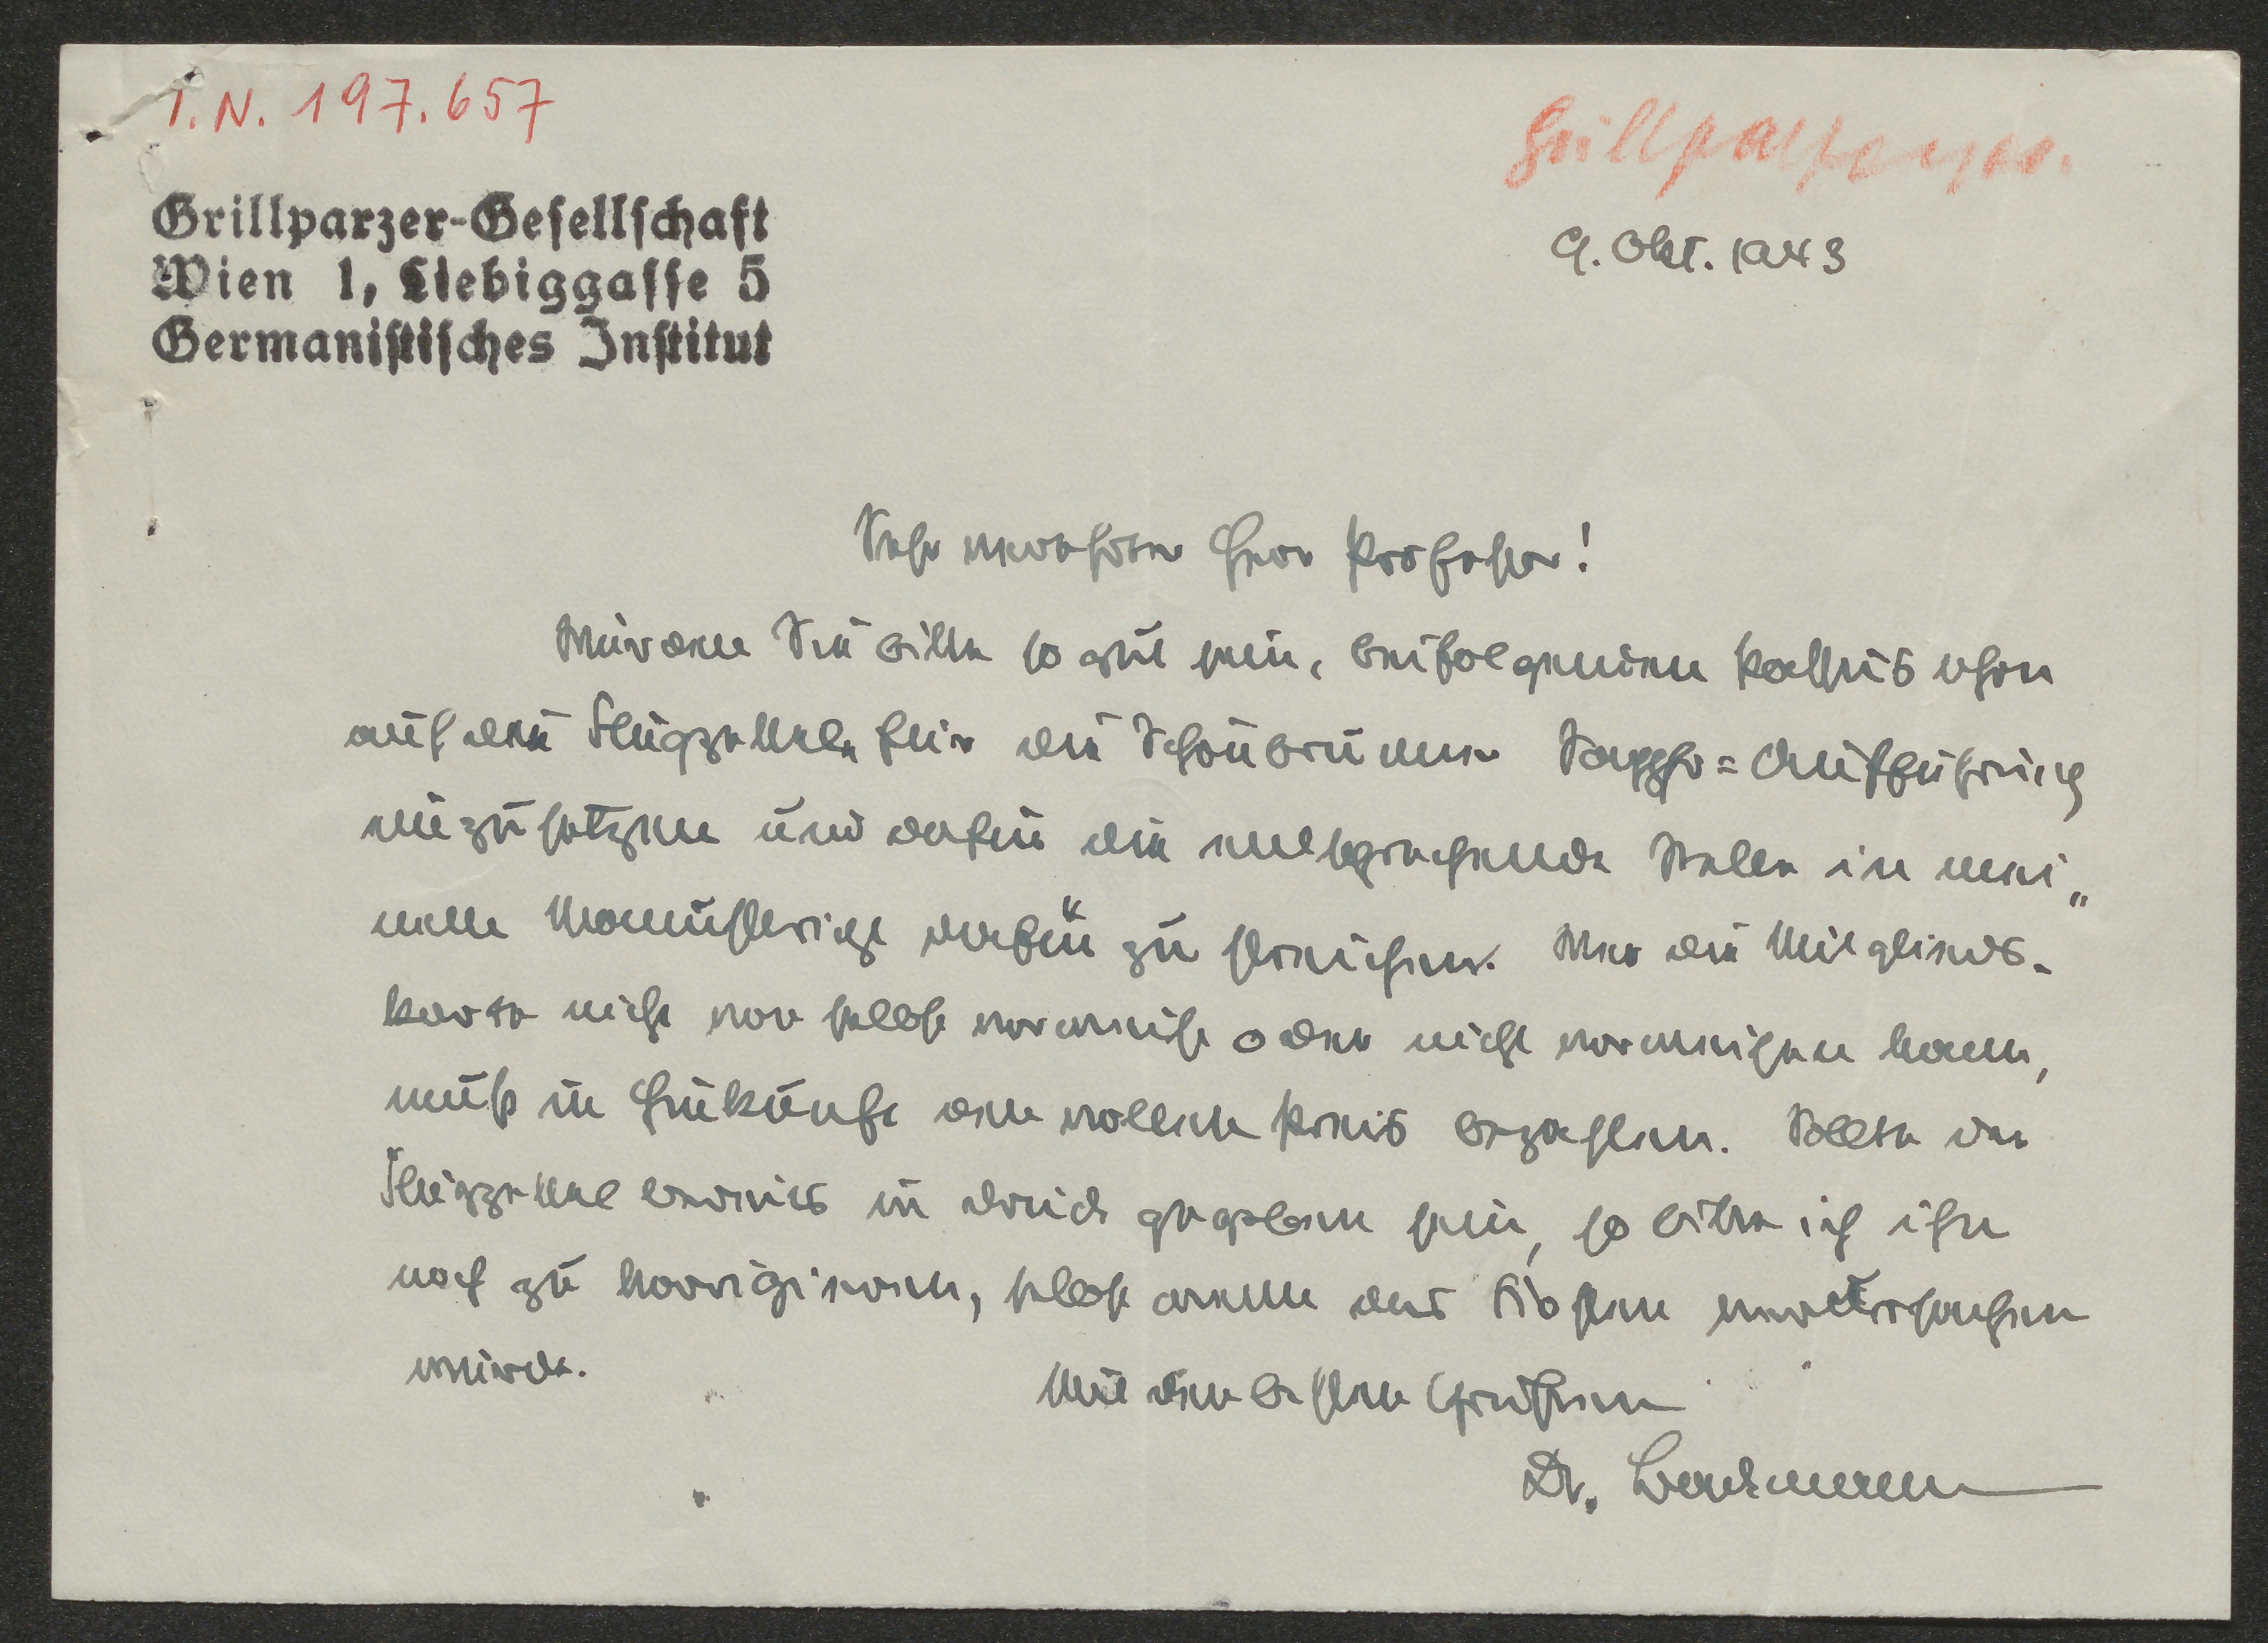 I.N. 197.657
Grillparzer.
Grillparzer-Gesellschaft
Wien 1, Liebiggasse 5
Germanistisches Institut
9. Okt. 1943
Sehr verehrter Herr Professor!
Würden Sie bitte so gut sein, beifolgenden Passus
auf dem Flugzettel für die Schönbrunner Sappho=Aufführung
einzusetzen und dafür die entsprechende Stelle in mei„
nem Manuskript dafür zu streichen. Wer die Mitglieds-
karte nicht vor selbst vorweist oder nicht vorweisen kann,
muß in Hinkunft den vollen Preis bezahlen. Sollte der
Flugzettel bereits in Druck gegeben sein, so bitte ich ihn
noch zu korrigieren, selbst wenn das Kosten verursachen
würde.
Mit den besten Grüßen
Dr.